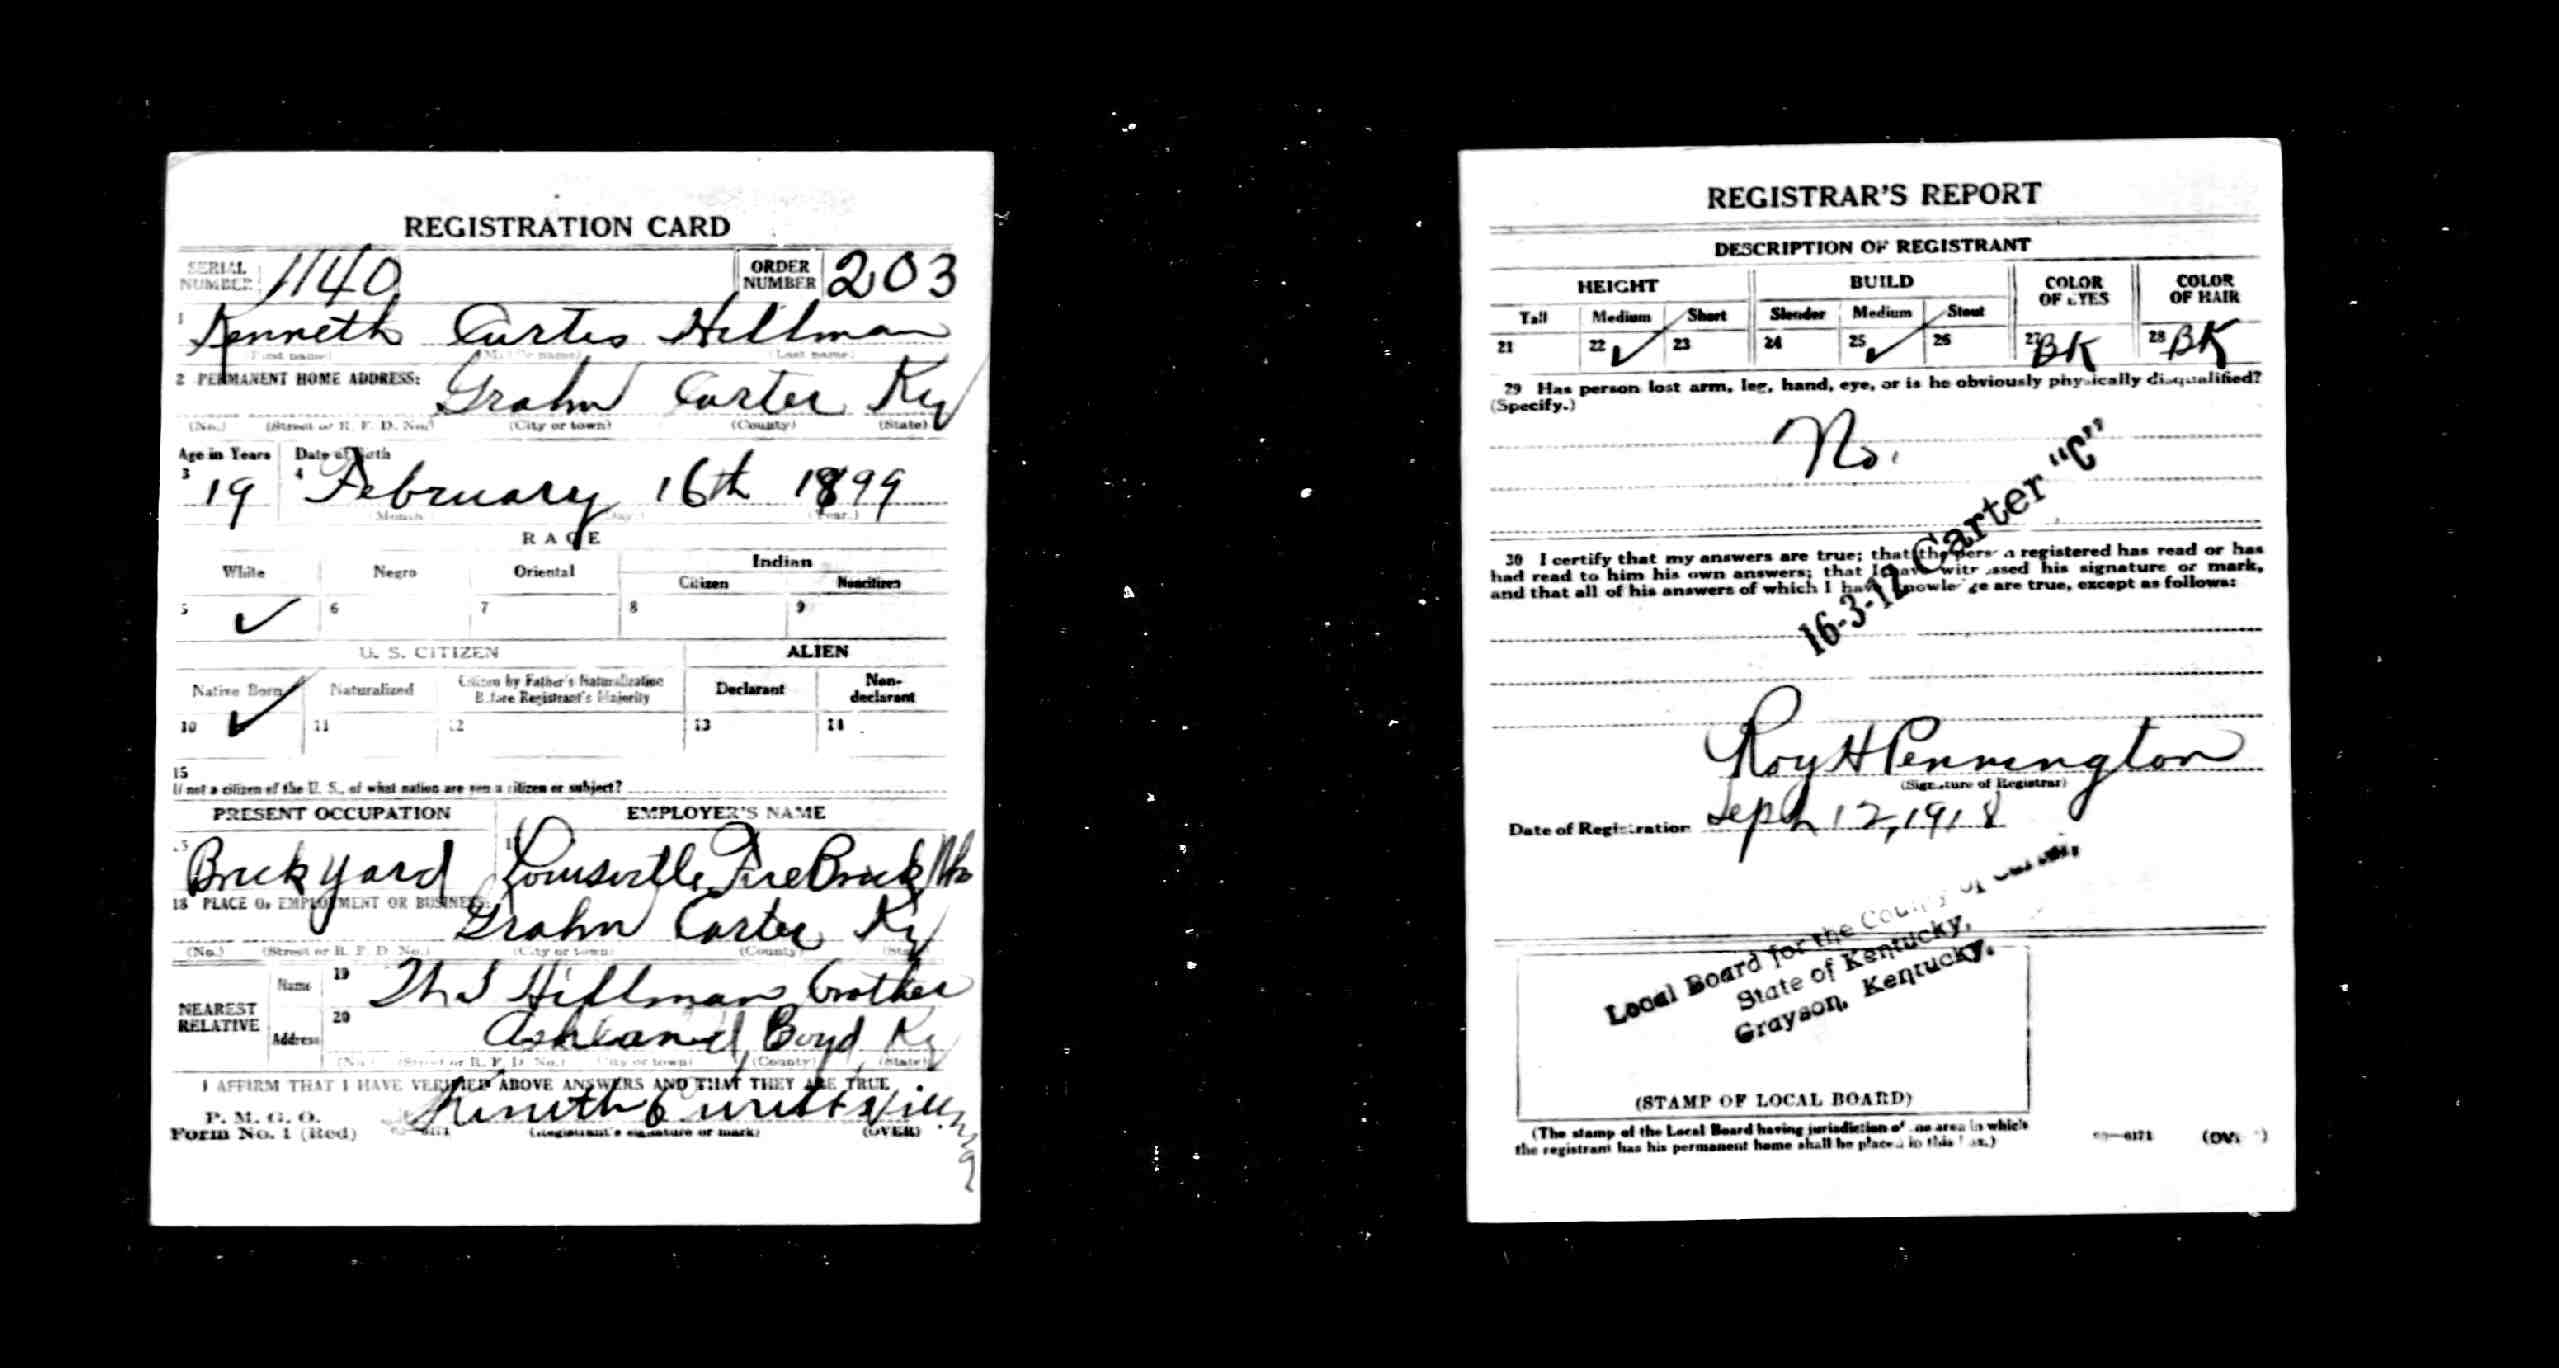 REGISTRATION CARD
SERIAL NUMBER 1140 ORDER NUMBER 203
1 Kenneth Curtis Hillman
(First name) (Middle name) (Last name)
2 PERMANENT HOME ADDRESS: Grahn Carter Ky
(No.) (Street or R. F. D. No.) (City or town) (County) (State)
Age in Years Date of Birth
3 19 4 February 16th 1899
(Month) (Day.) (Year.)
RACE
White Negro Oriental Indian
Citizen Noncitizen
5 ✓ 6 7 8 9
U. S. CITIZEN ALIEN
Native Born Naturalized Citizen by Father's Naturalization Before Registrant's Majority Declarant Non-declarant
10 ✓ 11 12 13 14
15
If not a citizen of the U. S., of what nation are you a citizen or subject?
PRESENT OCCUPATION EMPLOYER'S NAME
Brick yard Louisville Fire Brick
18 PLACE OF EMPLOYMENT OR BUSINESS:
Grahn Carter Ky
(No.) (Street or R. F. D. No.) (City or town) (County) (State)
NEAREST RELATIVE Name 19 Hillman brother
Address 20 Ashland, Boyd Ky
(No.) (Street or R. F. D. No.) (City or town) (County) (State)
I AFFIRM THAT I HAVE VERIFIED ABOVE ANSWERS AND THAT THEY ARE TRUE
P. M. G. O.
Form No. 1 (Red) (Registrant's signature or mark) (OVER)
REGISTRAR'S REPORT
DESCRIPTION OF REGISTRANT
HEIGHT BUILD COLOR OF EYES COLOR OF HAIR
Tall Medium Short Slender Medium Stout
21 22 ✓ 23 24 25 ✓ 26 27 BK 28 BK
29 Has person lost arm, leg, hand, eye, or is he obviously physically disqualified?
(Specify.)
No.
16-3-12 Carter "C"
30 I certify that my answers are true; that the person registered has read or has
had read to him his own answers; that I have witnessed his signature or mark,
and that all of his answers of which I have knowledge are true, except as follows:
Roy H Pennington
(Signature of Registrar)
Date of Registration Sept 12, 1918
Local Board for the County of Carter,
State of Kentucky,
Grayson, Kentucky.
(STAMP OF LOCAL BOARD)
(The stamp of the Local Board having jurisdiction of the area in which
the registrant has his permanent home shall be placed in this box.)
(OVER)